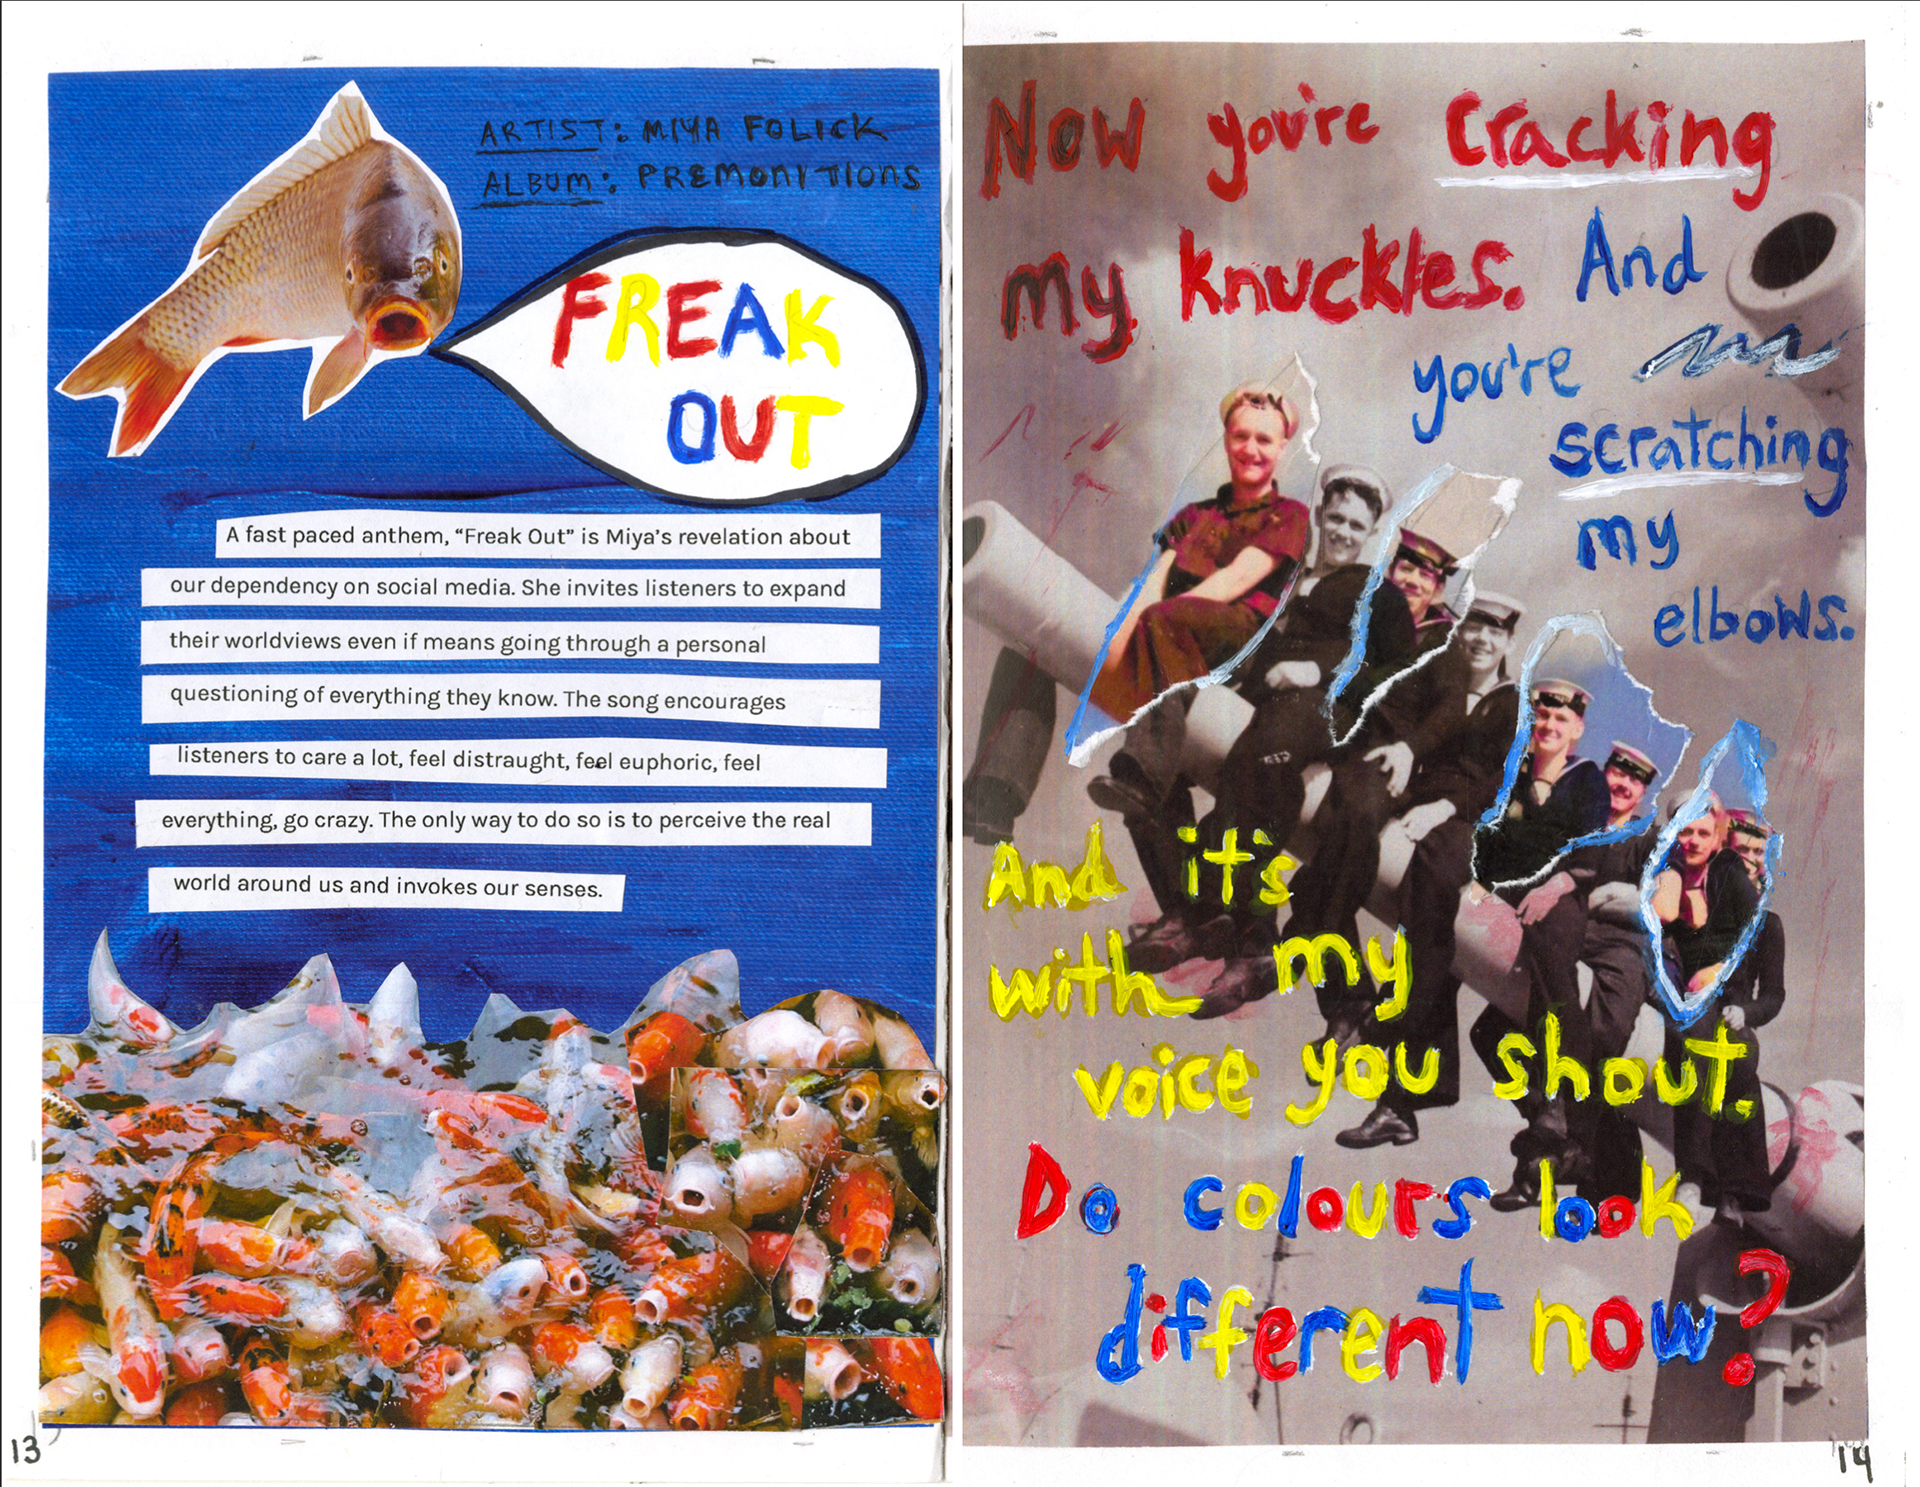 ARTIST: MIYA FOLICK
ALBUM: PREMONITIONS
FREAK
OUT
A fast paced anthem, “Freak Out” is Miya’s revelation about
our dependency on social media. She invites listeners to expand
their worldviews even if means going through a personal
questioning of everything they know. The song encourages
listeners to care a lot, feel distraught, feel euphoric, feel
everything, go crazy. The only way to do so is to perceive the real
world around us and invokes our senses.
13
Now you're cracking
my knuckles. And
you're
scratching
my
elbows.
And it's
with my
voice you shout.
Do colours look
different now?
14